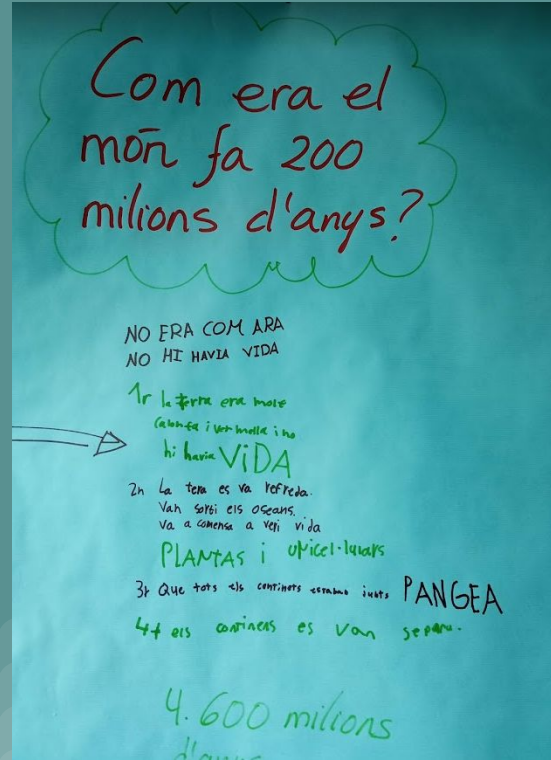 Com era el
món fa 200
milions d'anys?
NO ERA COM ARA
NO HI HAVIA VIDA
1r la terra era molt
calenta i vermella i no
hi havia ViDA
2n La tera es va refreda.
Van sorti els oseans.
Va a comensa a veri vida
PLANTAS i UNicel·lulars
3r Que tots els continets estaban junts PANGEA
4t els continens es van separa.
4.600 milions
d'anys